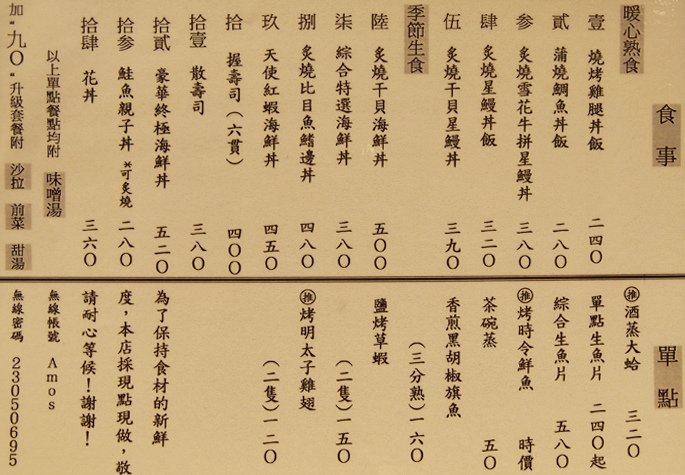 食事
暖心熟食
壹 燒烤雞腿丼飯 二四〇
貳 蒲燒鯛魚丼飯 二八〇
參 炙燒雪花牛拼星鰻丼 三八〇
肆 炙燒星鰻丼飯 三二〇
伍 炙燒干貝星鰻丼 三九〇
季節生食
陸 炙燒干貝海鮮丼 五〇〇
柒 綜合特選海鮮丼 三八〇
捌 炙燒比目魚鰭邊丼 四八〇
玖 天使紅蝦海鮮丼 四五〇
拾 握壽司(六貫) 四〇〇
拾壹 散壽司 三八〇
拾貳 豪華終極海鮮丼 五二〇
拾參 鮭魚親子丼 *可炙燒 二八〇
拾肆 花丼 三六〇
以上單點餐點均附 味噌湯
加"九〇"升級套餐附 沙拉 前菜 甜湯
單點
推 酒蒸大蛤 三二〇
單點生魚片 二四〇起
綜合生魚片 五八〇
推 烤時令鮮魚 時價
茶碗蒸 五〇
香煎黑胡椒旗魚
(三分熟)一六〇
鹽烤草蝦
(二隻)一五〇
推 烤明太子雞翅
(二隻)一二〇
為了保持食材的新鮮
度,本店採現點現做,敬
請耐心等候!謝謝!
無線帳號 Amos
無線密碼 23050695